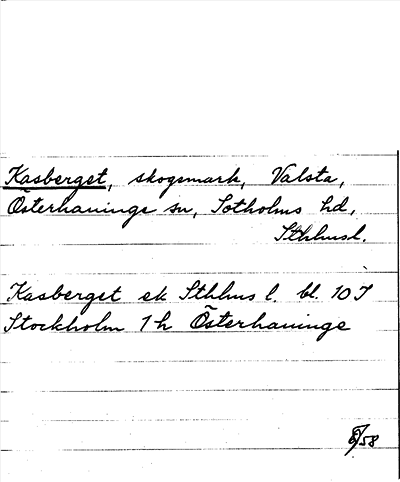 Kasberget, skogsmark, Valsta,
Österhaninge sn, Sotholms hd,
Sthlmsl.
Kasberget ek Sthlms l. bl. 10 I
Stockholm 1 h Österhaninge
/58